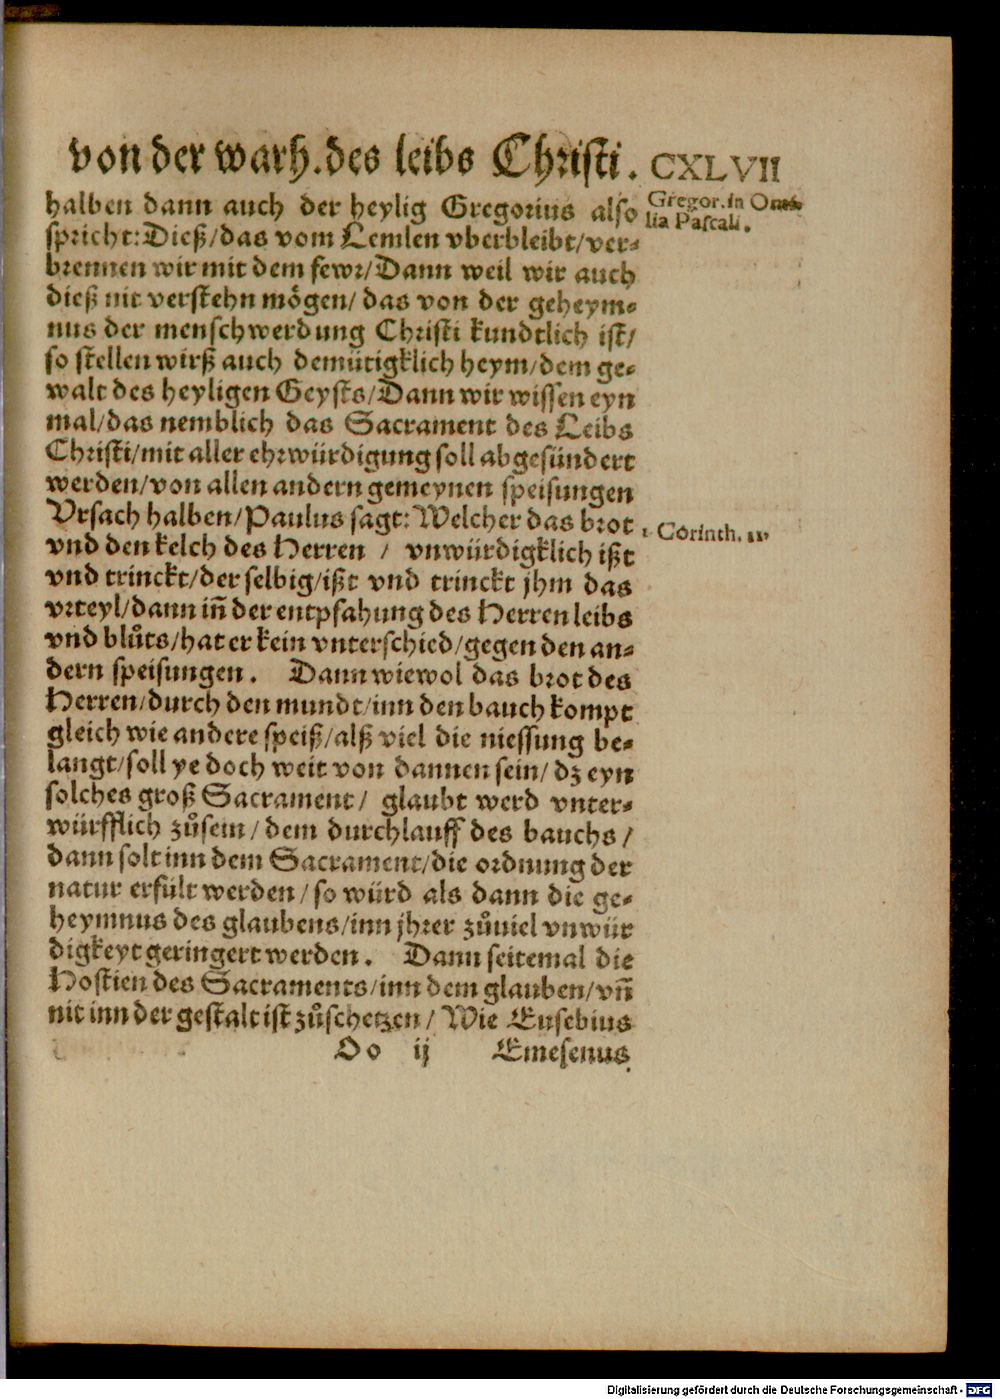 von der warh. des leibs Christi. CXLVII
halben dann auch der heylig Gregorius also
Gregor. in Ome
lia Pascali.
spricht: Dieß/ das vom Lemlen vberbleibt/ ver⸗
brennen wir mit dem fewr/ Dann weil wir auch
dieß nit verstehn mögen/ das von der geheym⸗
nus der menschwerdung Christi kundtlich ist/
so stellen wirß auch demütigklich heym/ dem ge⸗
walt des heyligen Geysts/ Dann wir wissen eyn
mal/ das nemblich das Sacrament des Leibs
Christi/ mit aller ehrwürdigung soll abgesündert
werden/ von allen andern gemeynen speisungen
Vrsach halben/ Paulus sagt: Welcher das brot
1. Corinth. 11
vnd den kelch des Herren / vnwürdigklich ißt
vnd trinckt/ der selbig/ ißt vnd trinckt jhm das
vrteyl/ dann in̄ der entpfahung des Herren leibs
vnd blůts/ hat er kein vnterschied/ gegen den an⸗
dern speisungen. Dann wiewol das brot des
Herren/ durch den mundt/ inn den bauch kompt
gleich wie andere speiß/ alß viel die niessung be⸗
langt/ soll ye doch weit von dannen sein/ dz eyn
solches groß Sacrament/ glaubt werd vnter⸗
würfflich zůsein/ dem durchlauff des bauchs/
dann solt inn dem Sacrament/ die ordnung der
natur erfült werden/ so würd als dann die ge⸗
heymnus des glaubens/ inn jhrer zůuiel vnwür
digkeyt geringert werden. Dann seitemal die
Hostien des Sacraments/ inn dem glauben/ vn̄
nit inn der gestalt ist zůschetzen/ Wie Eusebius
Oo ij Emesenus
Digitalisierung gefördert durch die Deutsche Forschungsgemeinschaft - DFG